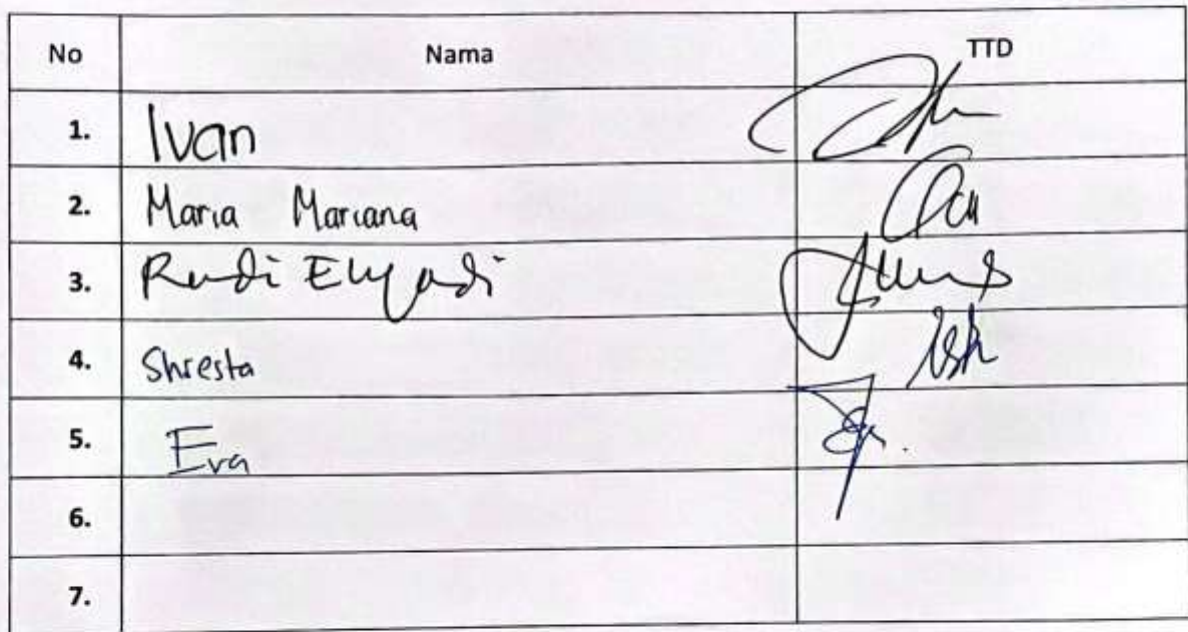 No Nama TTD
1. Ivan
2. Maria Mariana
3. Rudi
4. Shresta
5. Eva
6.
7.